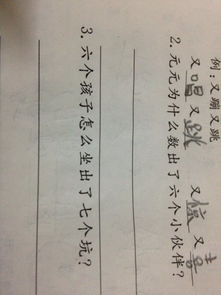 例:又蹦又跳
又唱又跳 又 又
2.元元为什么数出了六个小伙伴?
3.六个孩子怎么坐出了七个坑?